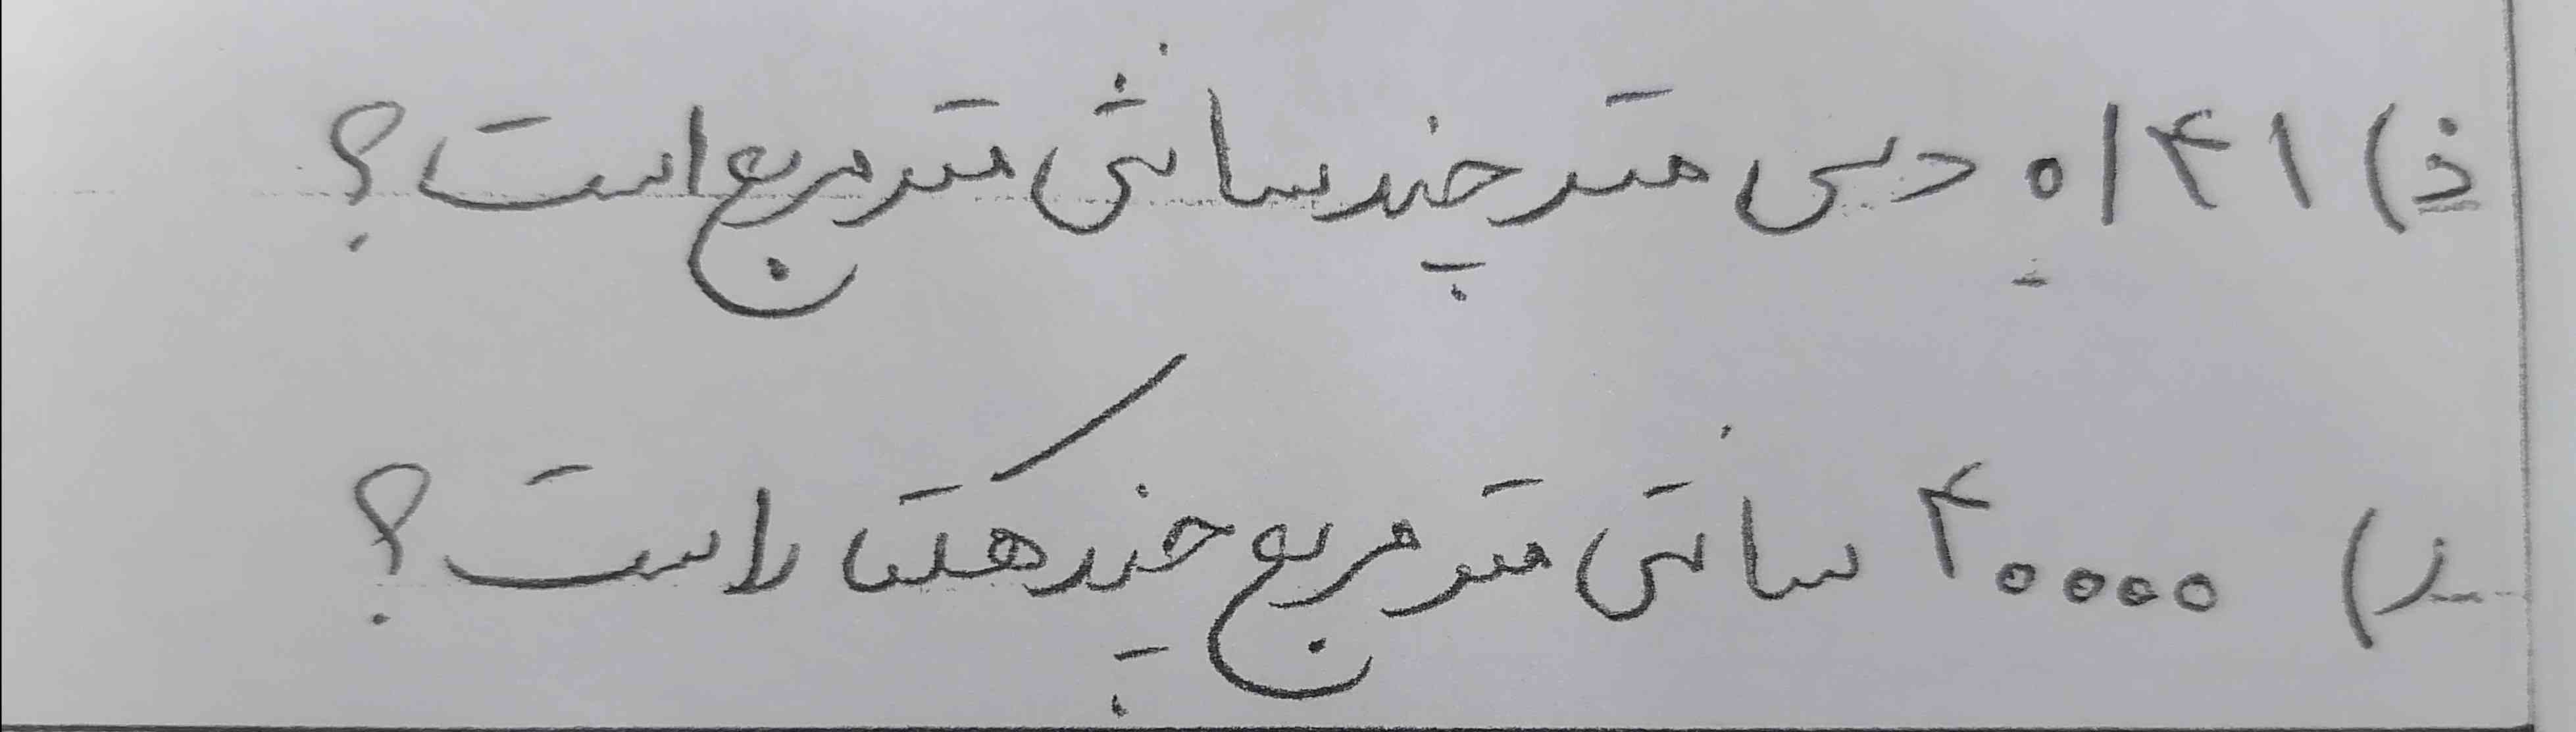 ذ) ۰/۴۱ دسی متر چند سانتی متر مربع است؟
ر) ۴۰۰۰۰ سانتی متر مربع چند هکتار است؟